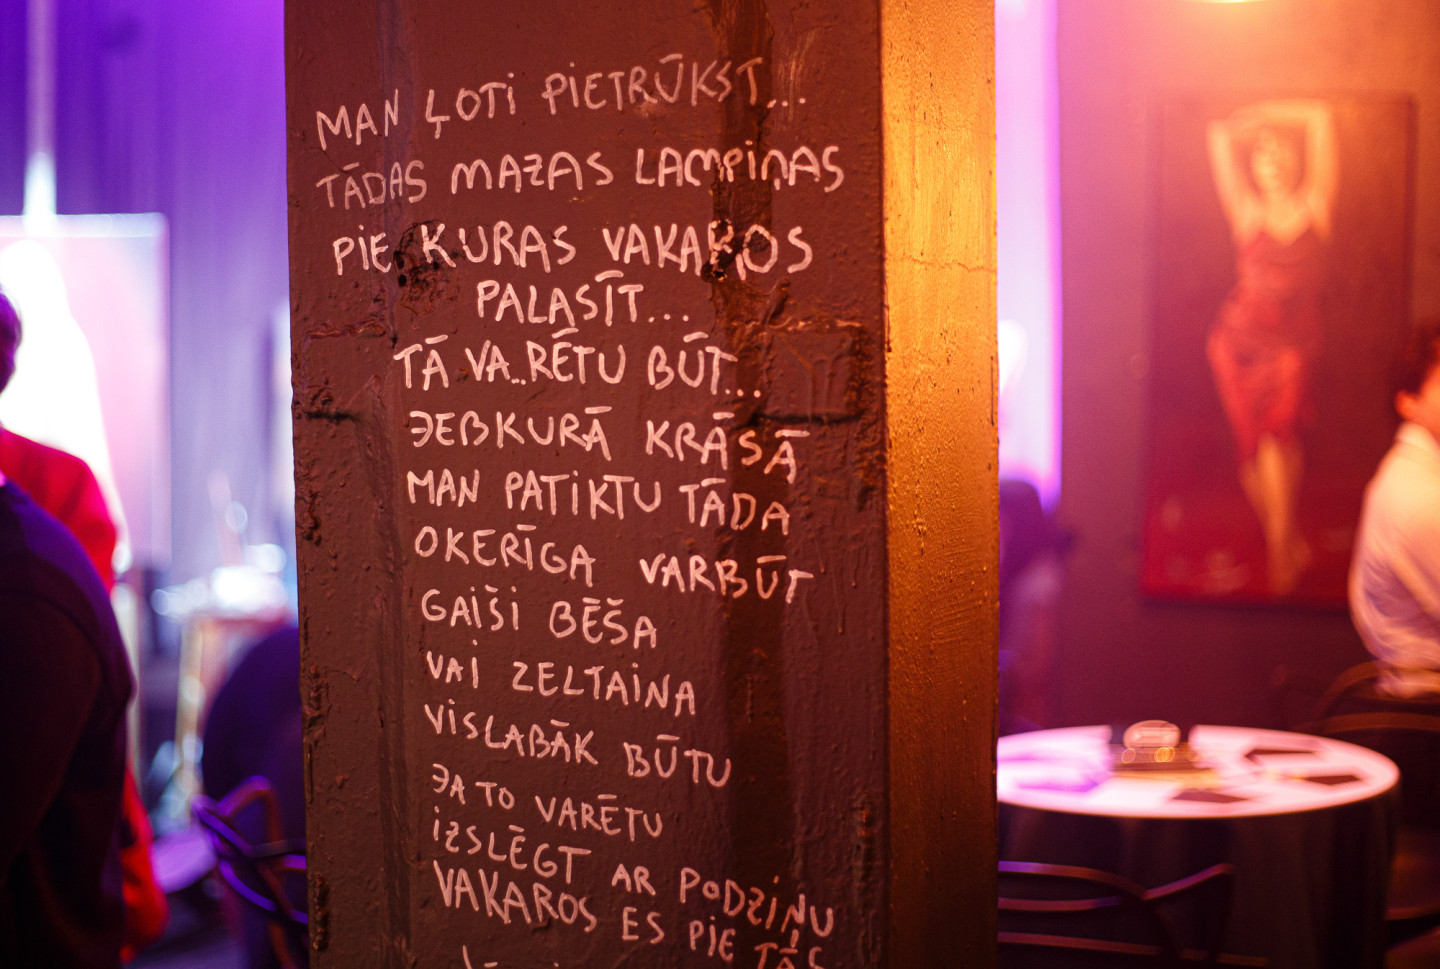 MAN ĻOTI PIETRŪKST...
TĀDAS MAZAS LAMPIŅAS
PIE KURAS VAKAROS
PALASĪT...
TĀ VA..RĒTU BŪT...
JEBKURĀ KRĀSĀ
MAN PATIKTU TĀDA
OKERĪGA VARBŪT
GAIŠI BĒŠA
VAI ZELTAINA
VISLABĀK BŪTU
JA TO VARĒTU
IZSLĒGT AR PODZIŅU
VAKAROS ES PIE TĀS